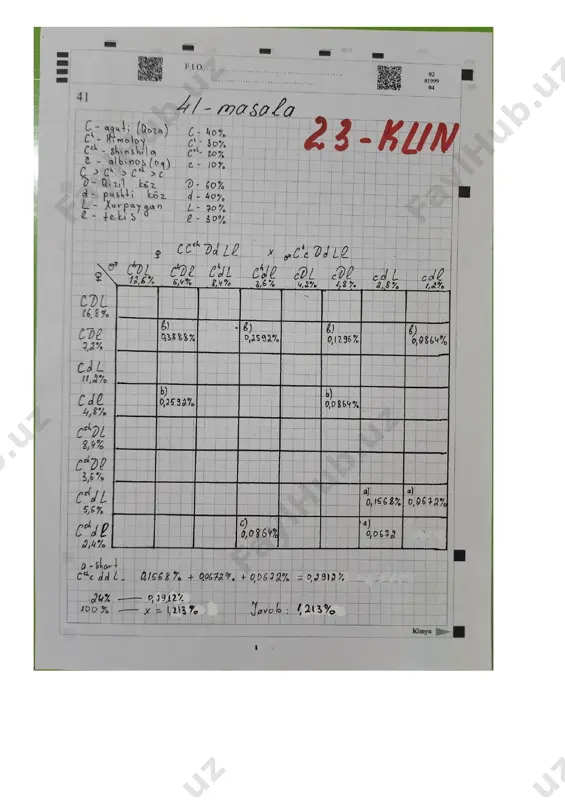 F.I.O.
02
01999
04
41
41-masala
23-KUN
C - aguti (Qora) C - 40%
Cʰ - Himoloy Cʰ - 30%
Cᶜʰ - shinshila Cᶜʰ - 20%
c - albinos (oq) c - 10%
C > Cʰ > Cᶜʰ > c
D - Qizil ko'z D - 60%
d - pushti ko'z d - 40%
L - Xurpaygan L - 70%
l - tekis l - 30%
♀ CCᶜʰDdLl x ♂ CʰcDdLl
♂ CʰDL CʰDl CʰdL Cʰdl cDL cDl cdL cdl
♀ 12,6% 5,4% 8,4% 3,6% 4,2% 1,8% 2,8% 1,2%
CDL
16,8%
CDl b) b) b) b)
7,2% 0,3888% 0,2592% 0,1296% 0,0864%
CdL
11,2%
Cdl b) b)
4,8% 0,2592% 0,0864%
CᶜʰDL
8,4%
CᶜʰDl
3,6%
CᶜʰdL a) a)
5,6% 0,1568% 0,0672%
Cᶜʰdl c) a)
2,4% 0,0864% 0,0672
a-shart
Cᶜʰc ddL - 0,1568% + 0,0672% + 0,0672% = 0,2912%
24% — 0,2912%
100% — x = 1,213% Javob: 1,213%
Kimyo
1
FaylHub.uz
FaylHub.uz
FaylHub.uz